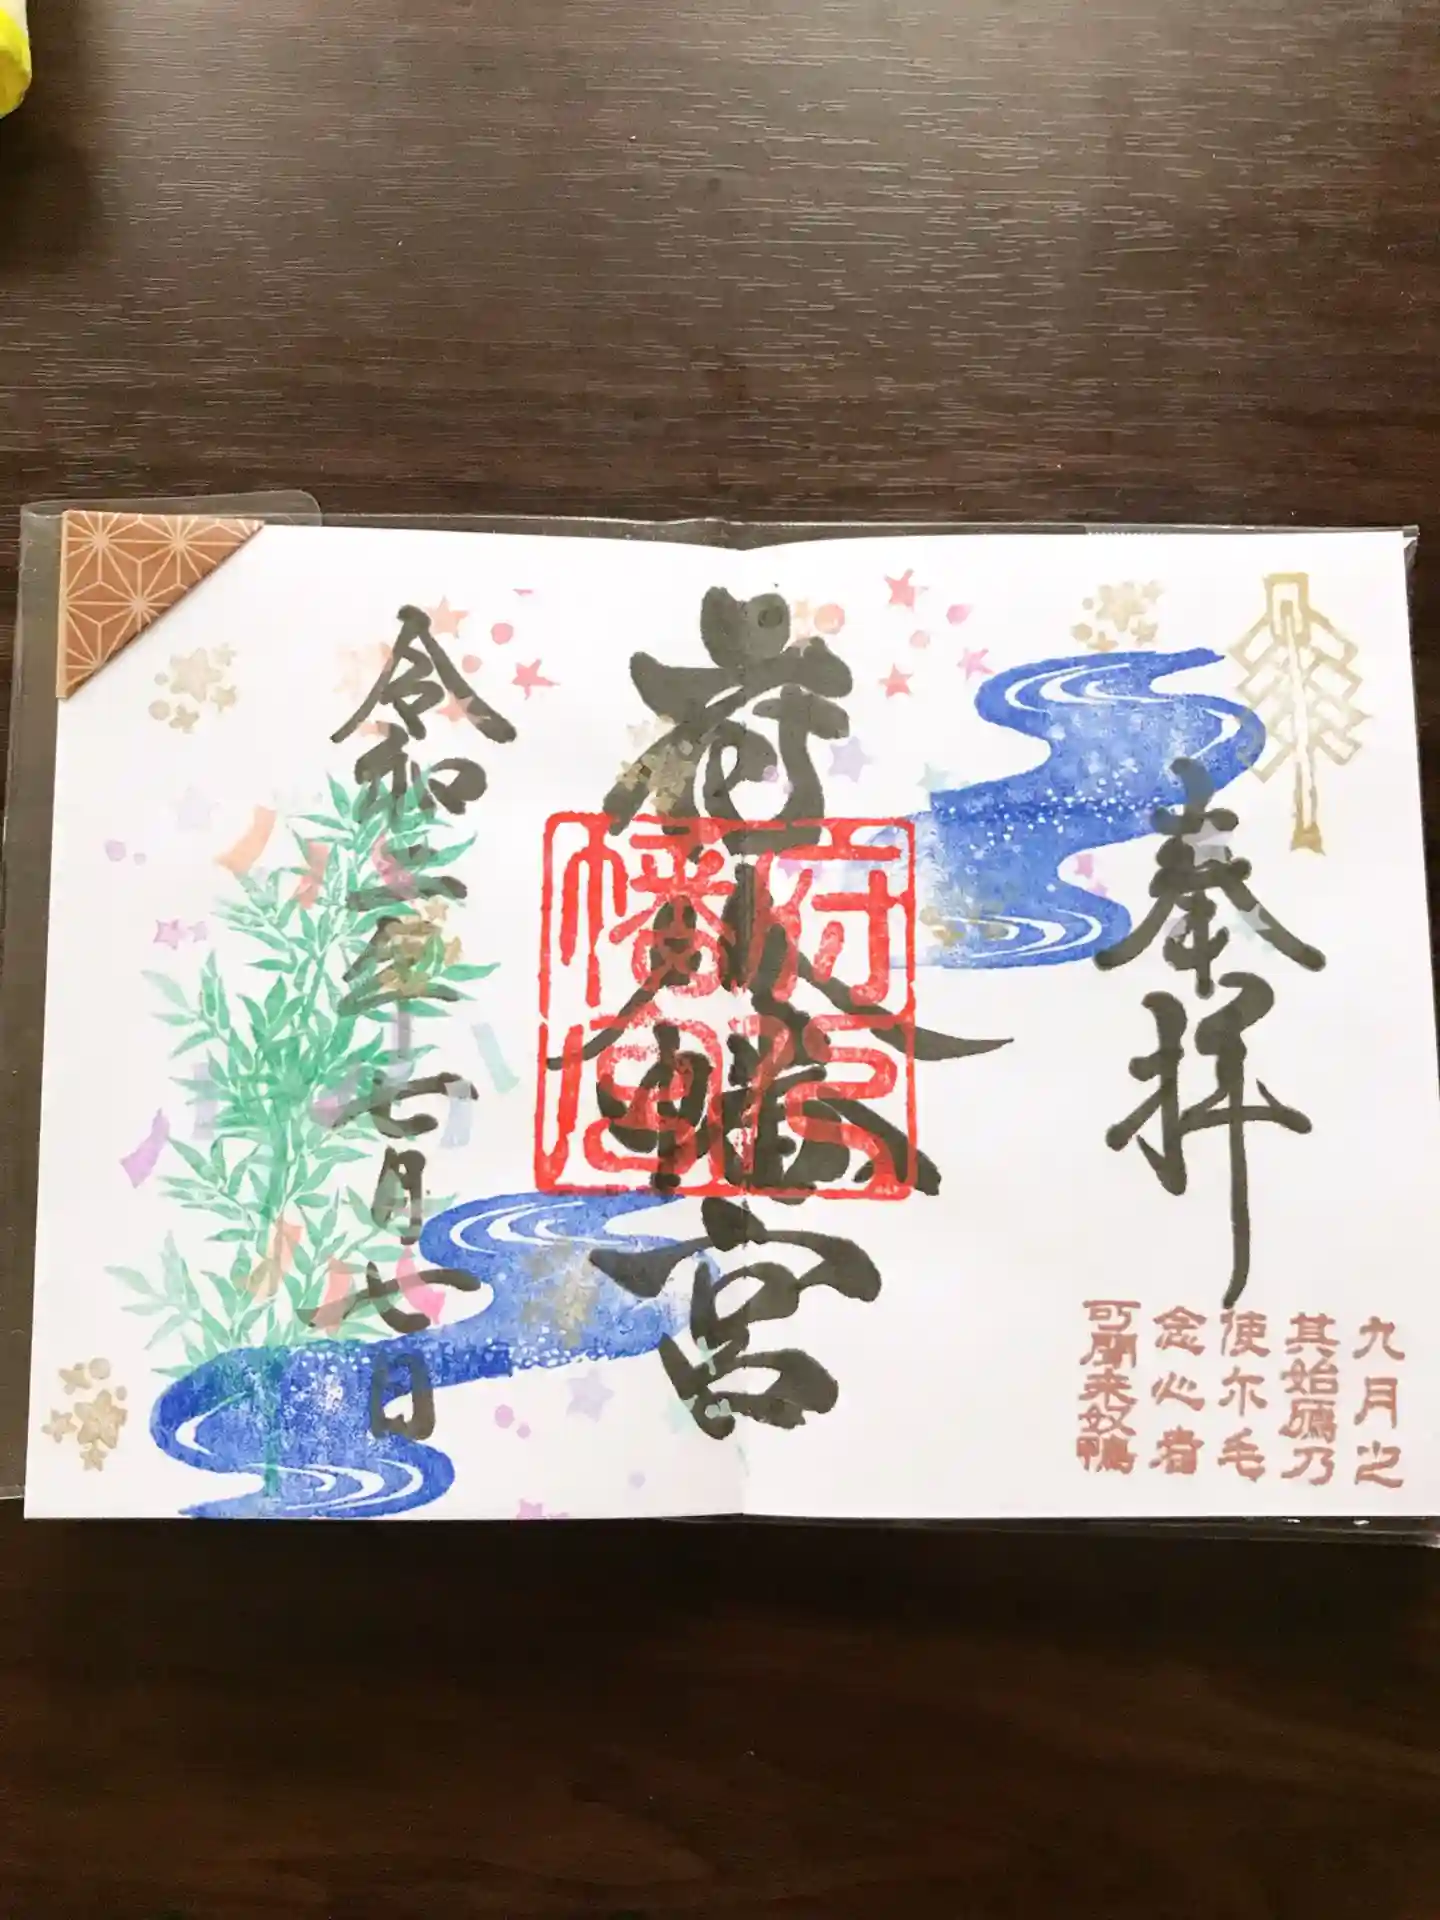 奉拝
府八幡宮
府八
幡宮
令和二年七月七日
九月之
其始鴈乃
使尓毛
念心者
可聞来奴鴨